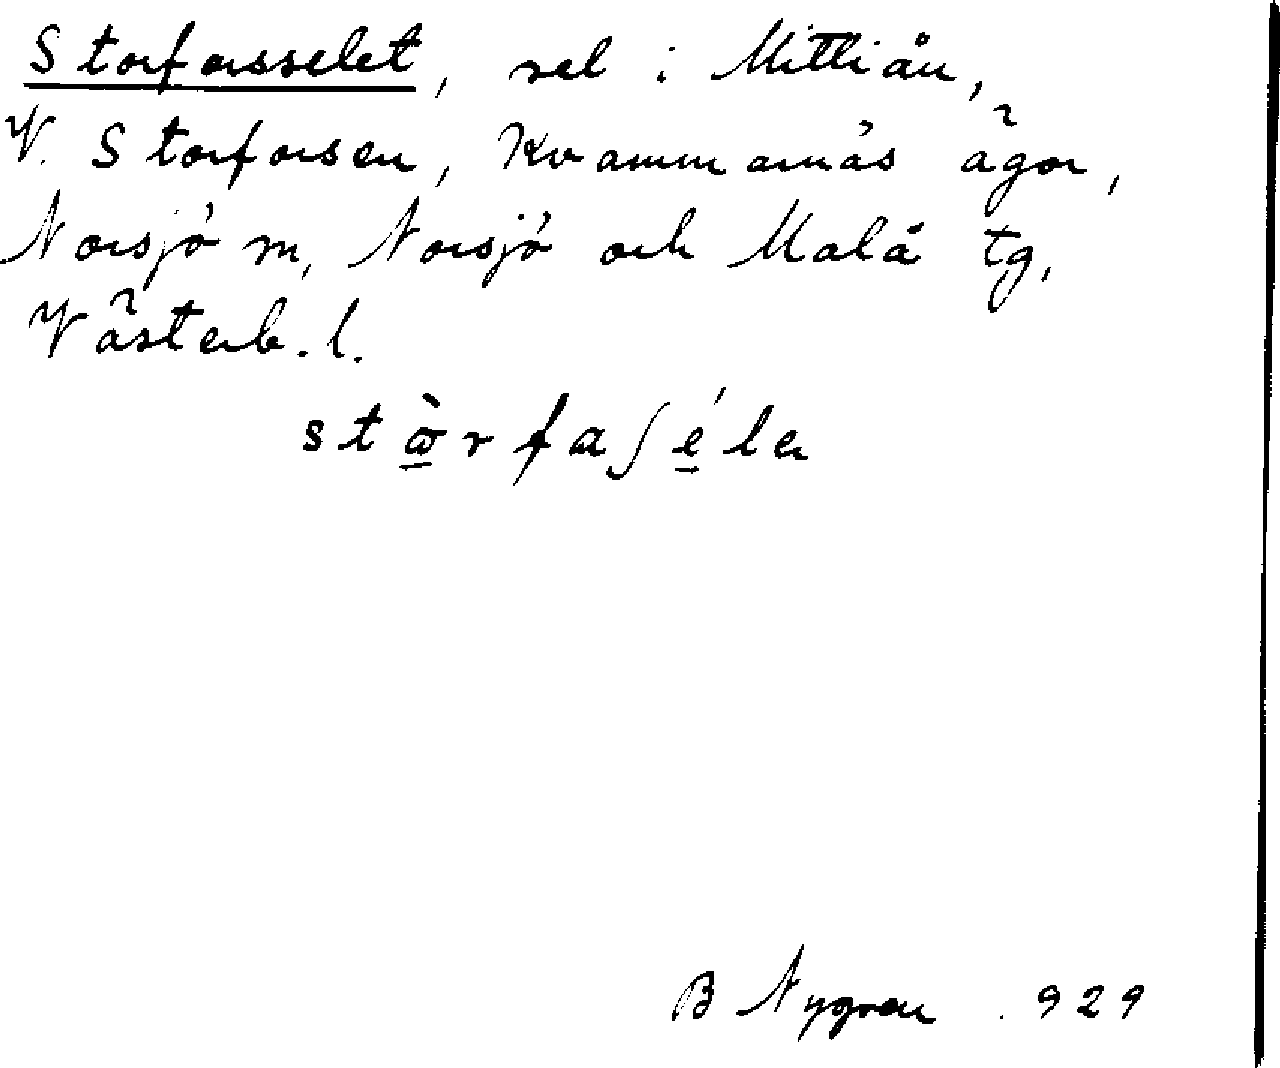 Storforsselet, sel i Mittiån,
V. Storforsen, Kvammarnäs ägor,
Norsjö sn, Norsjö och Malå tg,
Västerb. l.
B Nygren . 929